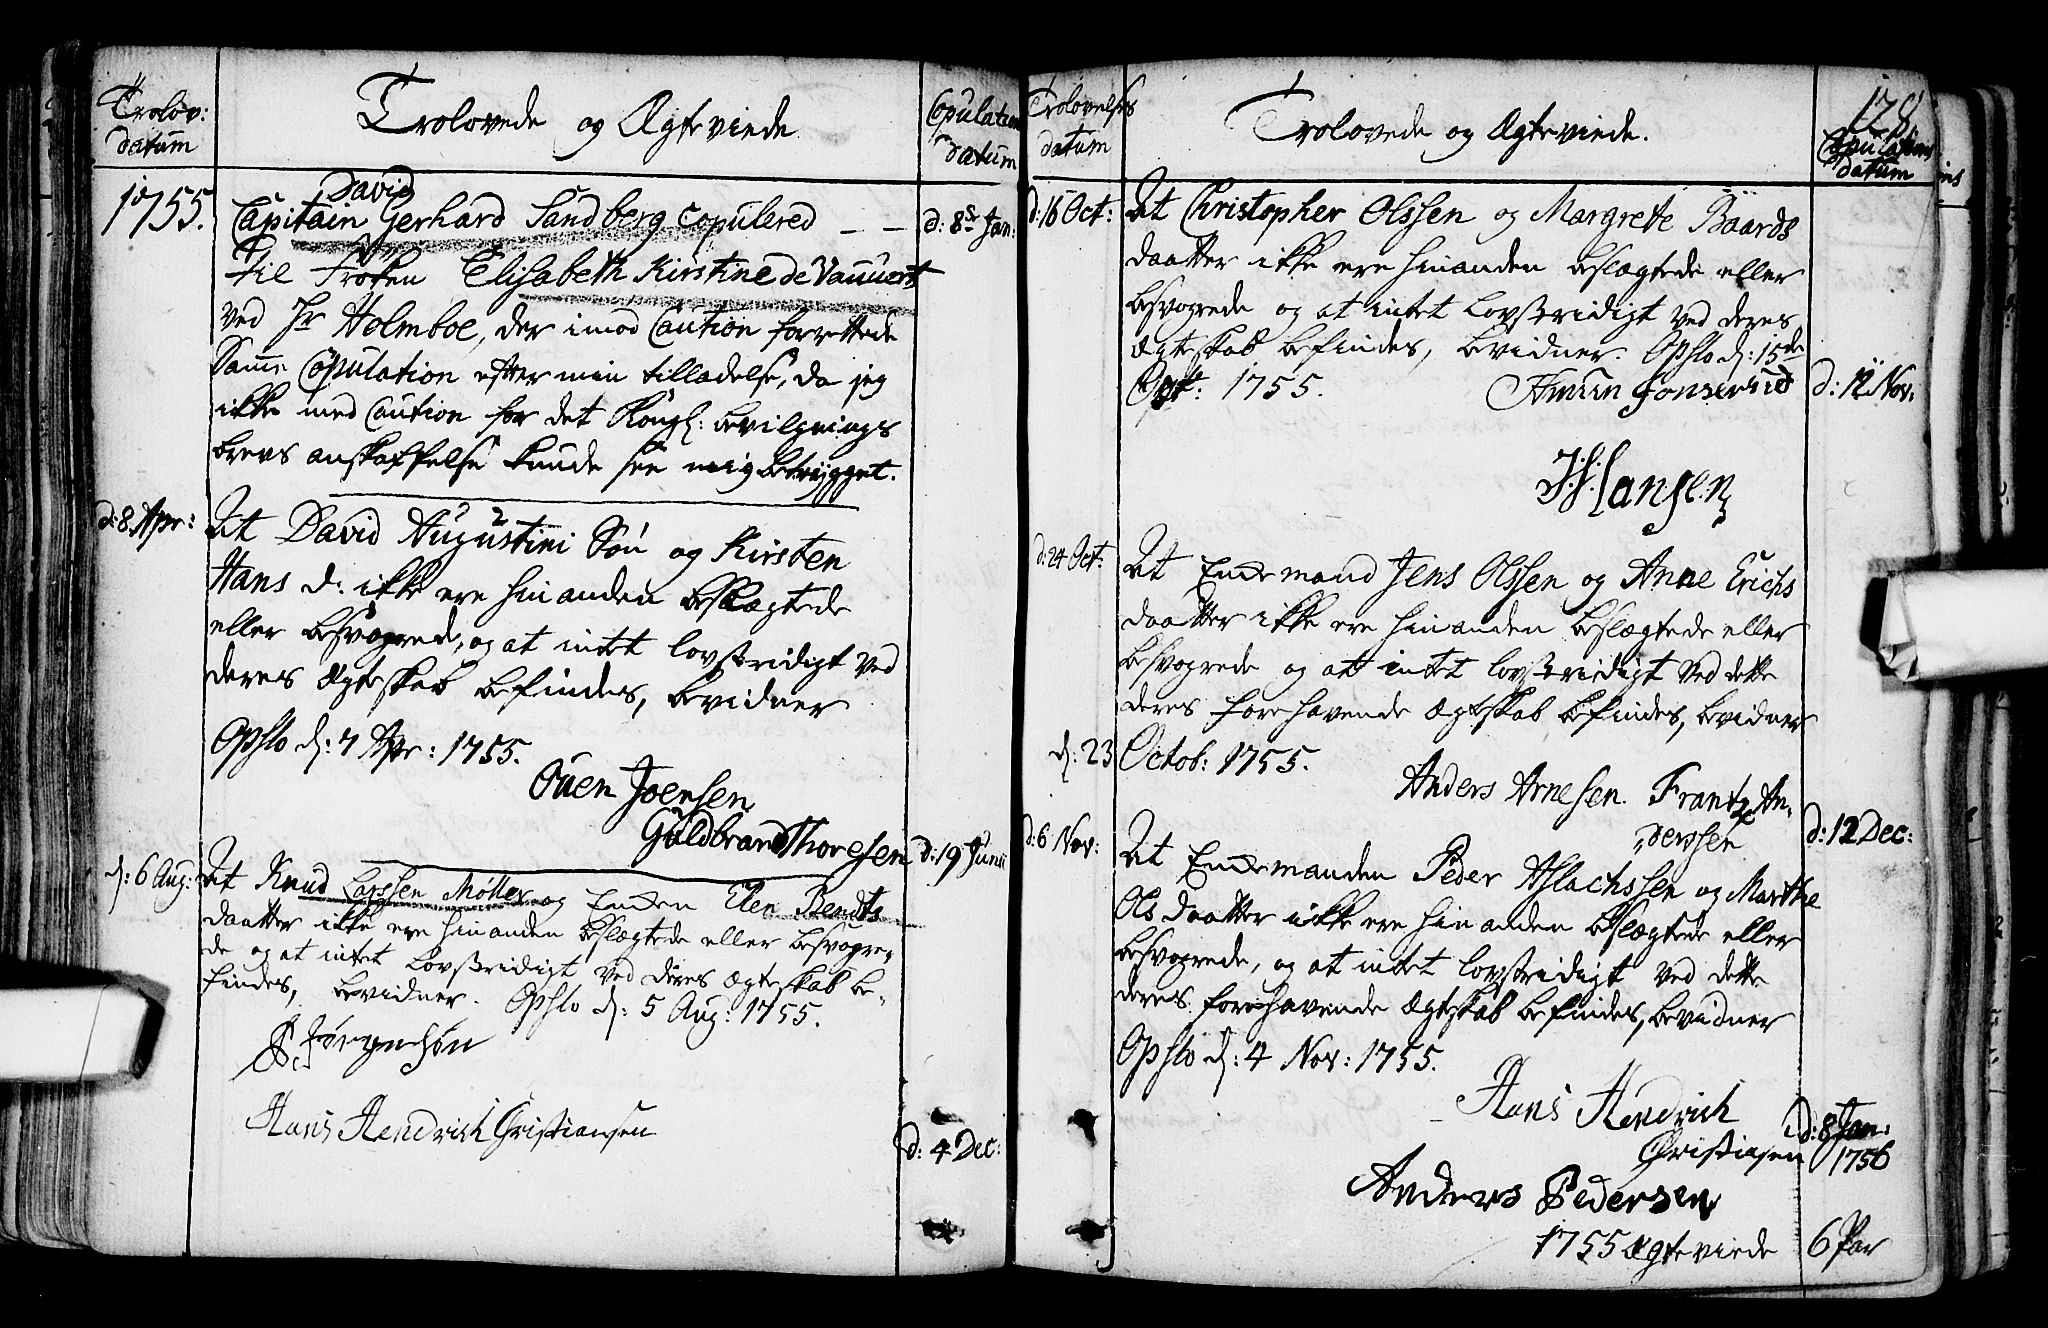 Trolov:
datum
Trolovede og Ægteviede
Copulation
datum
1755.
David
Capitain Gerhard Sandberg Copulered - -
d: 8de Jan:
til Frøken Elisabeth Kirstine de Vannert
ved Hr Holmboe, der imod Caution forrettede
Samme Copulation efter min tilladelse, da jeg
ikke med Caution for det Kongl: bevilgnings
brevs anskaffelse kunde see mig betrygget.
d: 8 Apr:
At David Augustini Søn og Kirsten
Hans d: ikke ere hinanden beslægtede
eller besvogrede, og at intet lovstridigt ved
deres Ægteskab befindes, bevidner
Opslo d: 7 Apr: 1755.
Ouen Joensen
Guldbrand Thoresen
d: 19 Junii
d: 6 Aug:
At Knud Larssen Møller og Enken Elen Bendts
daatter ikke ere hinanden beslægtede eller besvogre-
de og at intet lovstridigt ved deres Ægteskab be-
findes, bevidner. Opslo d: 5 Aug: 1755.
Jørgensøn
Hans Hendrich Christiansen
d: 4 Dec:
Trolovelses
datum
Trolovede og Ægteviede.
178
Copulations
datum
d: 16 Oct:
At Christopher Olssen og Margrette Baards
daatter ikke ere hinanden beslægtede eller
besvogrede og at intet lovstridigt ved deres
Ægteskab befindes, bevidner. Opslo d: 15de
Oct: 1755.
Amun Jonserud
d: 12 Nov:
H: Hansen
d: 24 Oct:
At Enkemand Jens Olssen og Anne Erichs
daatter ikke ere hinanden beslægtede eller
besvogrede og at intet lovstridigt ved dette
deres forehavende Ægteskab befindes, bevidner
d: 23 Octob: 1755.
Anders Arnesen. Frantz An-
derssen
d: 12 Dec:
d: 6 Nov:
At Enkemanden Peder Aslachssen og Marthe
Ols daatter ikke ere hinanden beslægtede eller
besvogrede, og at intet lovstridigt ved dette
deres forehavende Ægteskab befindes, bevidner
Opslo d: 4 Nov: 1755.
Hans Hendrich
Christiansen
d: 8 Jan:
1756
Anders Pedersen
1755 Ægteviede 6 Par